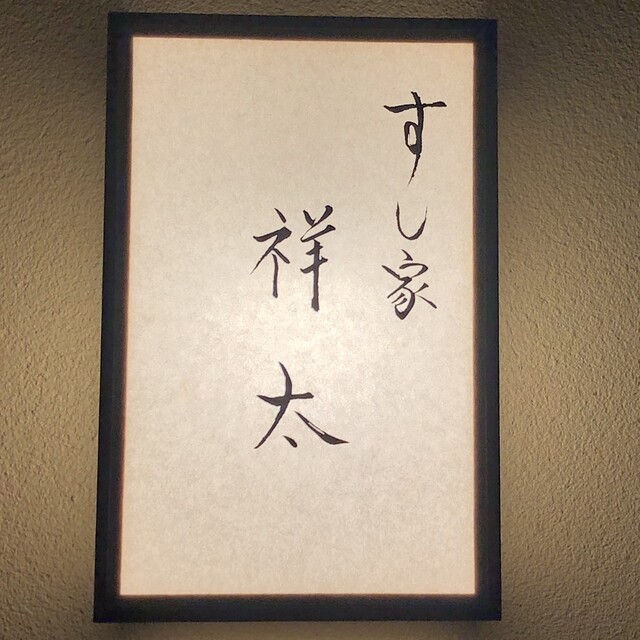 すし家
祥太